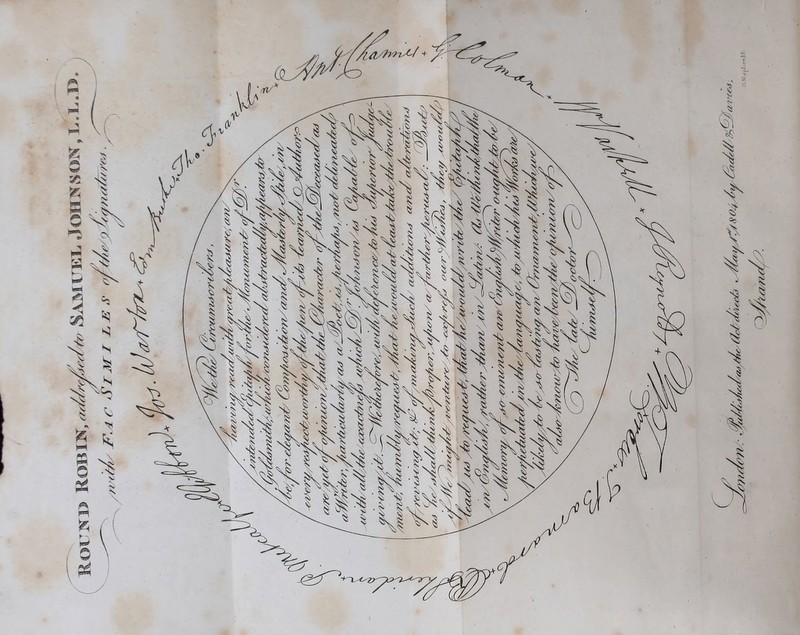 ROUND ROBIN, addressed to SAMUEL JOHNSON, L.L.D.
with FAC SIMILES of the Signatures.
We the Circumscribers,
having read with great pleasure, an
intended Epitaph for the Monument of Dr.
Goldsmith; which considered abstractedly, appears to
be, for elegant Composition and Masterly Stile, in
every respect worthy of the pen of its learned Author;
are yet of opinion, that the Character of the Deceased as
a Writer, particularly as a Poet, is, perhaps, not delineated
with all the exactness which Dr. Johnson is Capable of
giving it. — We therefore, with deference to his superior Judge-
ment, humbly request, that he would, at least take the trouble
of revising it; & of making such additions and alterations
as he shall think proper, upon a further perusal: — But
if We might venture to express our Wishes, they would
lead us to request, that he would write the Epitaph
in English, rather than in Latin: As We think that the
Memory of so eminent an English Writer ought to be
perpetuated in the language, to which his Works are
likely to be so lasting an Ornament, Which we
also know to have been the opinion of
The late Doctor
himself.
Edm Burke + Tho. Franklin + Ant. Chamier + G. Colman + Wm Vaskell + J Reynolds + W Forbes + T. Barnard + R B Sheridan + P. Metcalfe + E Gibbon + Jos. Warton +
London: Published as the Act directs May 1st. 1804, by Cadell & Davies,
Strand.